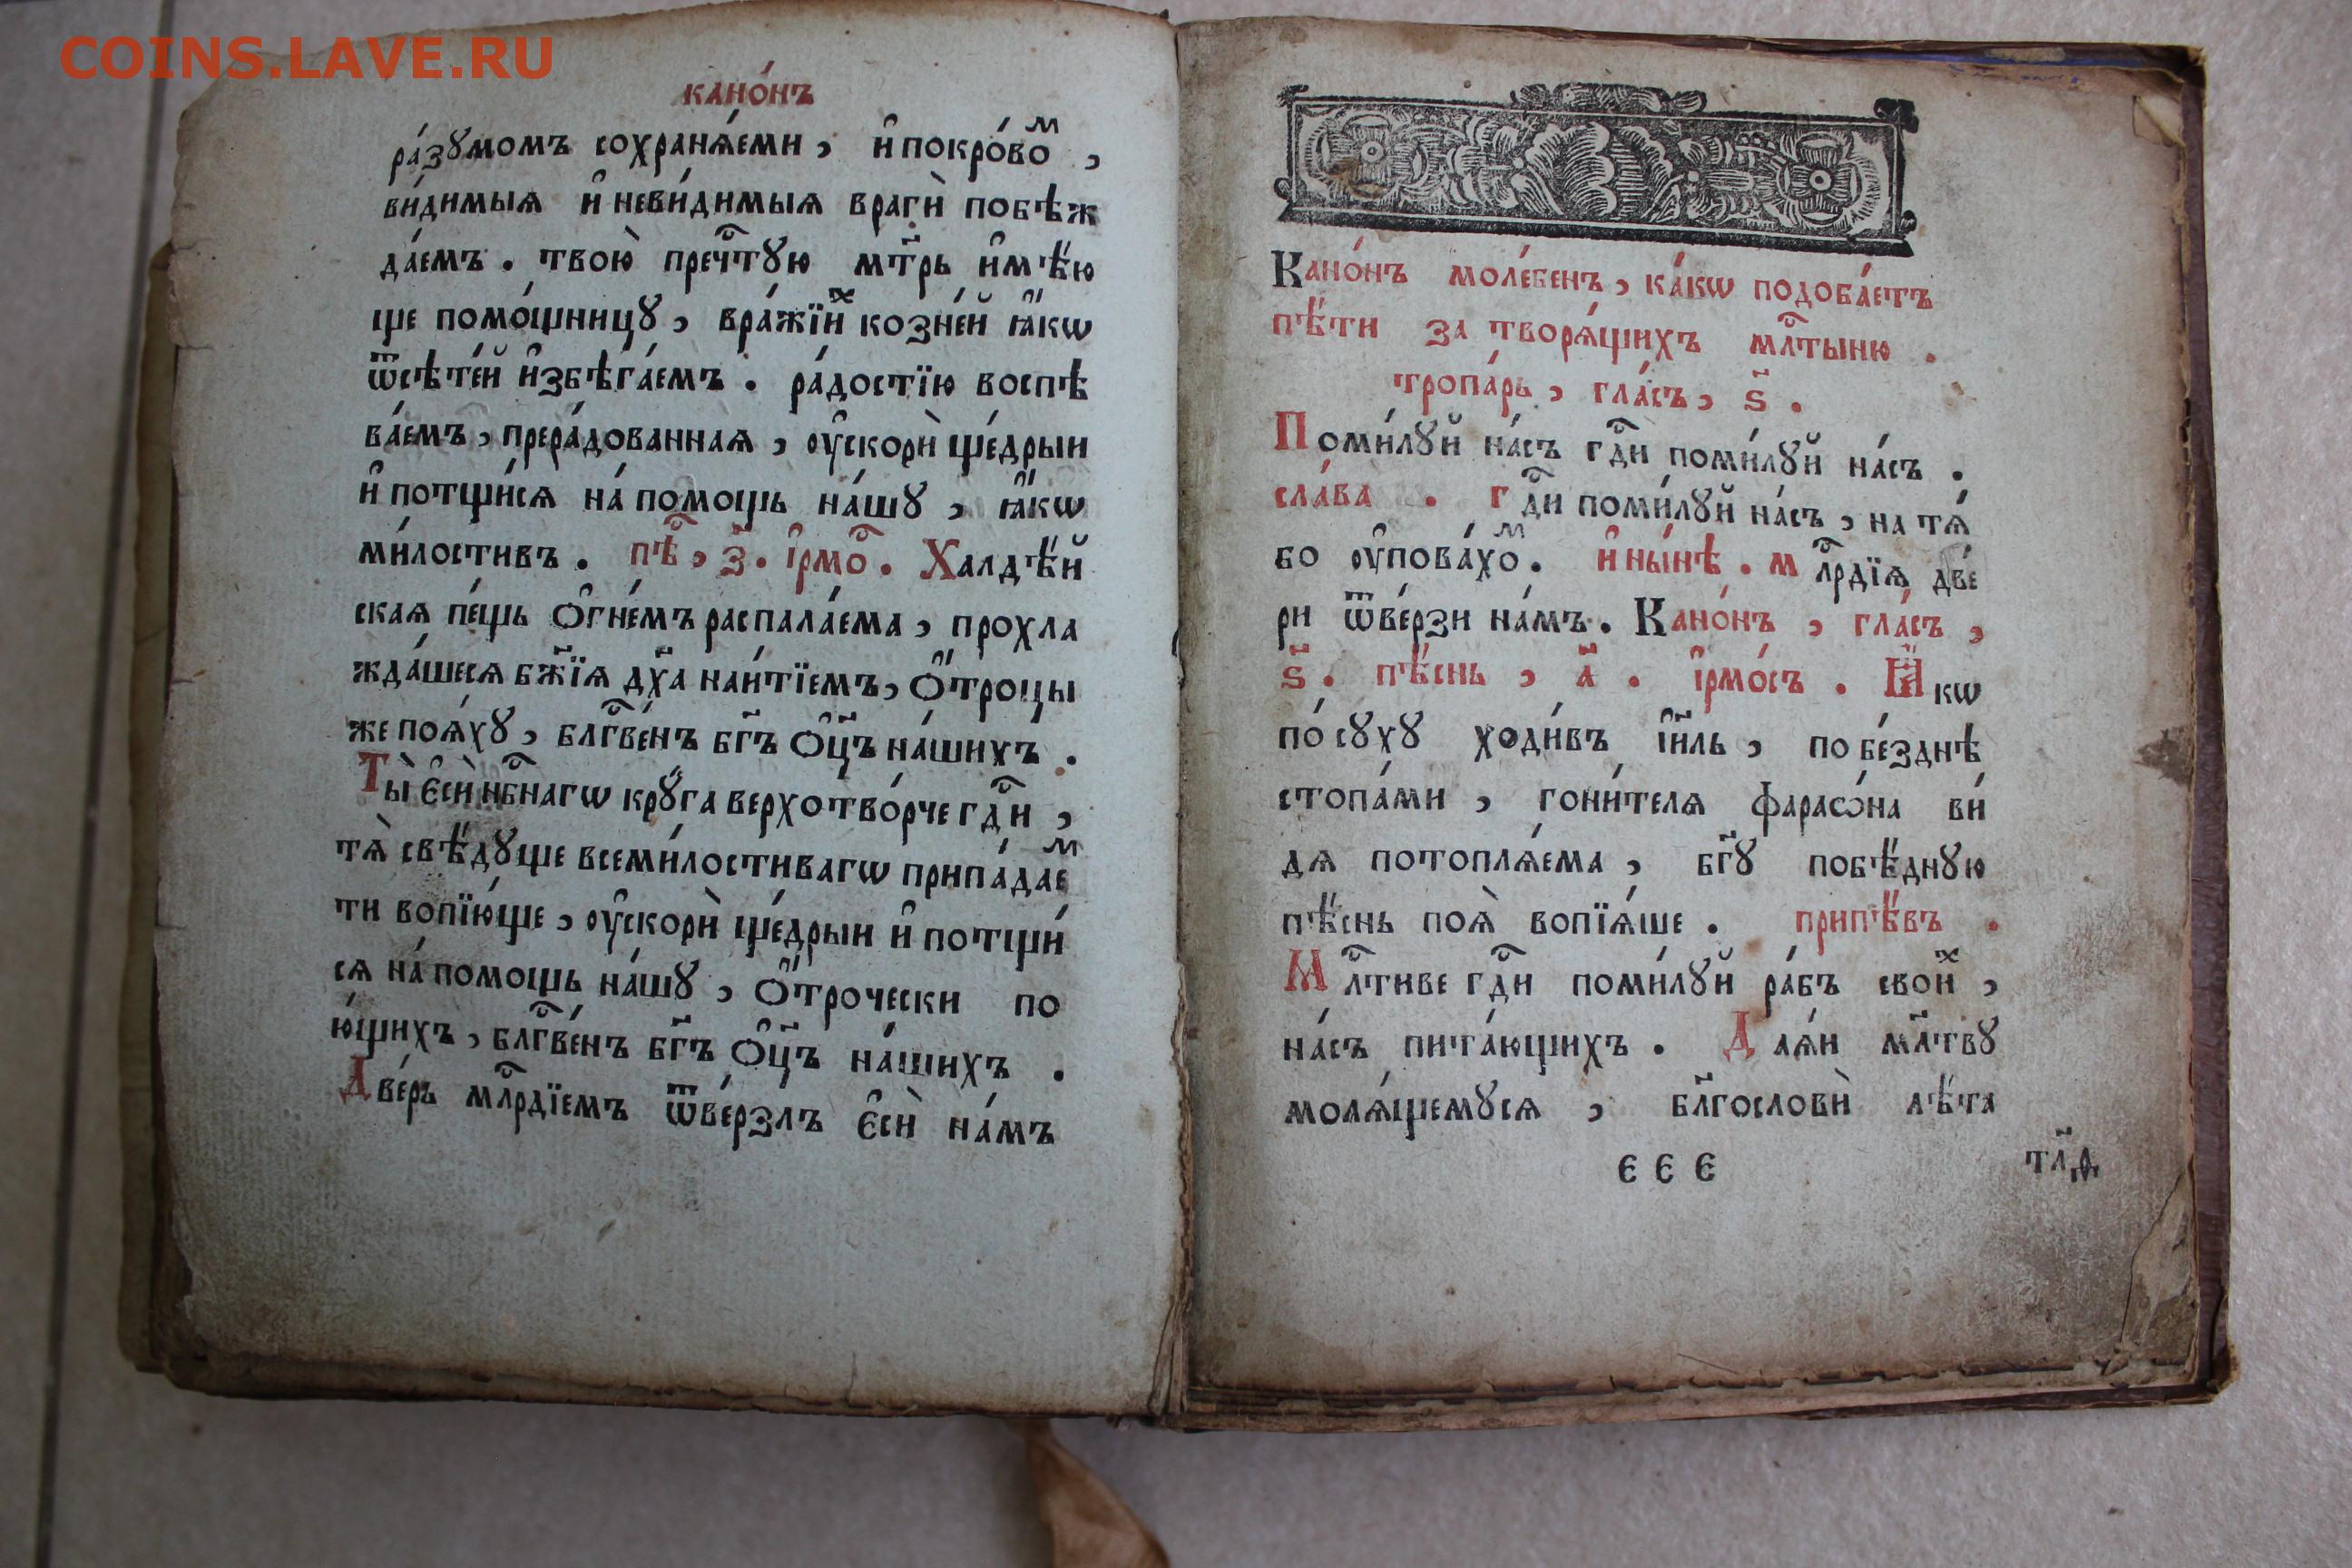 COINS.LAVE.RU
кано́нъ
ра́зꙋмомъ сохранѧ́еми, и҆ покро́воⷨ,
ви́димыѧ и҆ неви́димыѧ врагѝ побѣж
да́емъ. твою̀ преч҇тꙋю мт҃рь и҆мѣ́ю
ще помо́щницꙋ, вра́жїиⷯ козне́й ꙗ҆́кѡ
ѿ сѣте́й и҆збѣга́емъ. ра́достїю воспѣ
ва́емъ, прера́дованнаѧ, оу҆скорѝ ще́дрыи
и҆ потщи́сѧ на́ помощь на́шꙋ, ꙗ҆́кѡ
ми́лостивъ. пѣ҇, з҃. і҆рмо҇. Халдѣ́й
скаѧ пе́щь О҆гне́мъ распала́ема, прохла
жда́шесѧ бж҃їѧ дх҃а наи́тїемъ, О҆́троцы
же поѧ́хꙋ, блг҇ве́нъ бг҃ъ О҆ц҃ъ на́шихъ.
Ты̀ є҆сѝ нб҇нагѡ крꙋ́га верхотво́рче гд҇и,
тѧ̀ свѣ́дꙋще всеми́лостивагѡ припа́даеⷨ
ти вопїю́ще, оу҆скорѝ ще́дрыи и҆ потщи́
сѧ на́ помощь на́шꙋ, О҆́трочески по
ю́щихъ, блг҇ве́нъ бг҃ъ О҆ц҃ъ на́шихъ.
Две́рь млр҇дїемъ ѿве́рзлъ є҆сѝ на́мъ
Кано́нъ моле́бенъ, ка́кѡ подоба́етъ
пѣ́ти за творѧ́щихъ мл҇тыню.
тропа́рь, гла́съ, ѕ҃.
Поми́лꙋй на́съ гд҇и поми́лꙋй на́съ.
сла́ва. гд҇и поми́лꙋй на́съ, на тѧ́
бо оу҆пова́хоⷨ. и҆ ны́нѣ. млр҇дїѧ две́
ри ѿве́рзи на́мъ. Кано́нъ, гла́съ,
ѕ҃. пѣ́снь, а҃. і҆рмо́съ. Ꙗ҆́кѡ
по́ сꙋхꙋ ходи́въ і҆и҃ль, по бе́зднѣ
стопа́ми, гони́телѧ фараѡ́на ви́
дѧ потоплѧ́ема, бг҃ꙋ побѣ́днꙋю
пѣ́снь поѧ̀ вопїѧ́ше. припѣ́въ.
Мл҇тиве гд҇и поми́лꙋй ра́бъ своиⷯ,
на́съ пита́ющихъ. Даѧ́и мл҃твꙋ
молѧ́щемꙋсѧ, бл҃гословѝ лѣ́та
є є є
тл҃д